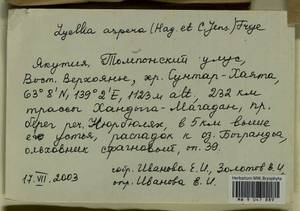 Lyellia aspera (Hag. et C. Jens.) Frye
Якутия, Томпонский улус,
Вост. Верхоянье, хр. Сунтар-Хаята,
63° 8' N, 139° 2' E, 1123 м alt, 232 км
трассы Хандыга-Магадан, пр.
берег реч. Нюргюлях, в 5 км выше
его устья, распадок к оз.
ольховник сфагновый, оп. 39.
17.VII.2003
собр. Иванова Е.И., Золотов В.И.
опр. Иванова Е.И.
Herbarium MW, Bryophyta
MW 9 047 889